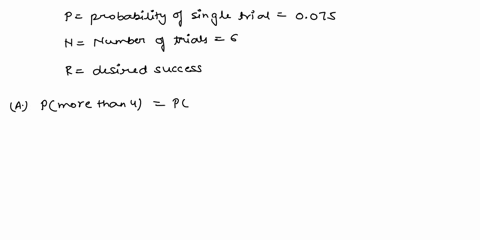 P = probability of single trial = 0.075
N = Number of trials = 6
R = desired success
(A.) P(more than 4) = P(